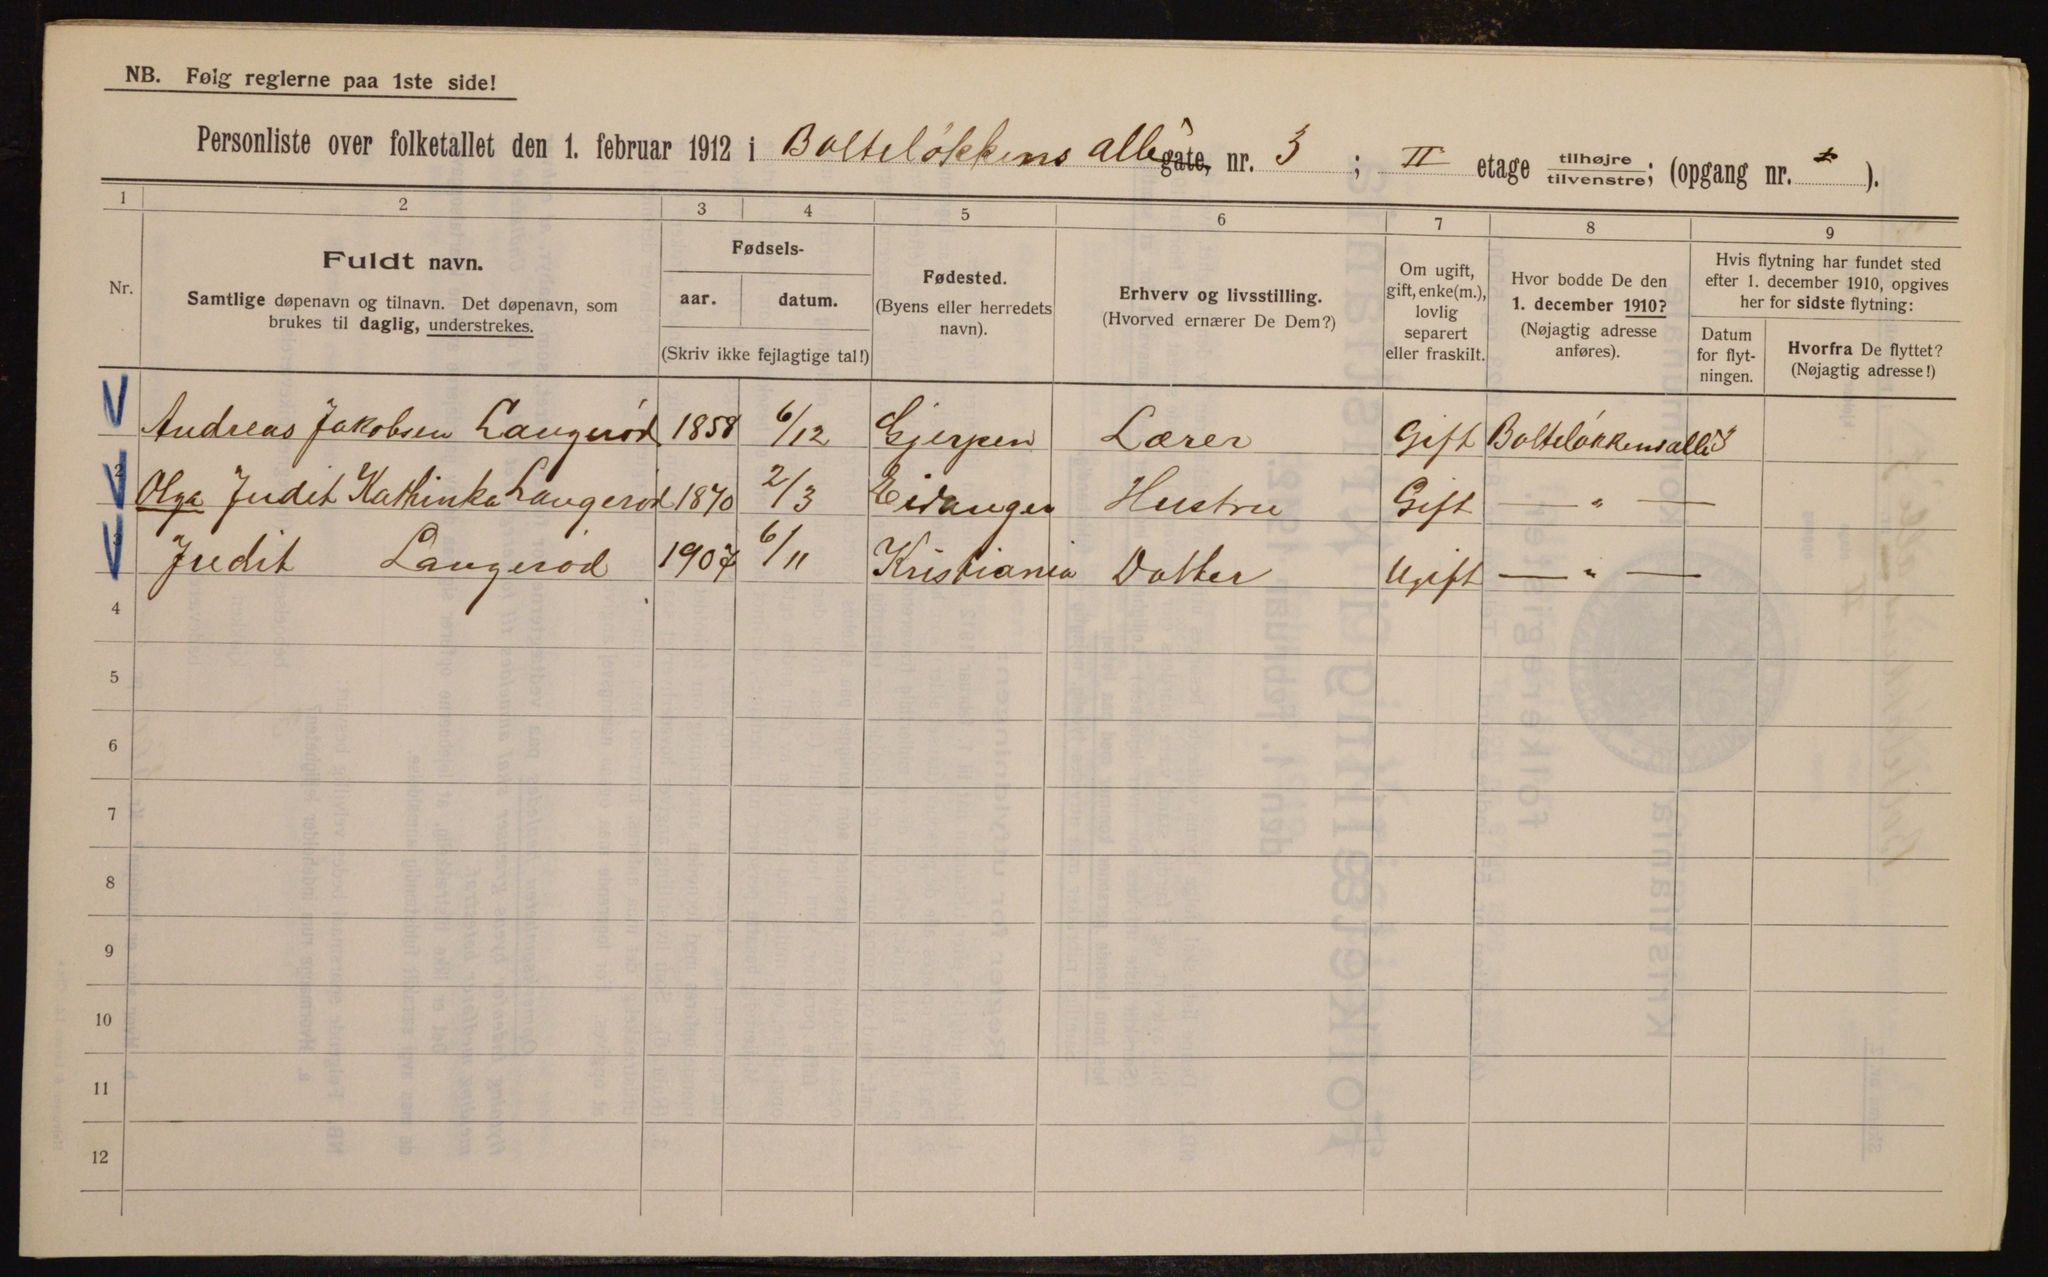 NB. Følg reglerne paa 1ste side!
Personliste over folketallet den 1. februar 1912 i Bolteløkkens allé gate, nr. 3 ; II etage tilhøjre tilvenstre; (opgang nr. ).
1 2 3 4 5 6 7 8 9
Nr.
Fuldt navn.
Samtlige døpenavn og tilnavn. Det døpenavn, som
brukes til daglig, understrekes.
Fødsels-
aar. datum.
(Skriv ikke fejlagtige tal!)
Fødested.
(Byens eller herredets
navn).
Erhverv og livsstilling.
(Hvorved ernærer De Dem?)
Om ugift,
gift, enke(m.),
lovlig
separert
eller fraskilt.
Hvor bodde De den
1. december 1910?
(Nøjagtig adresse
anføres).
Hvis flytning har fundet sted
efter 1. december 1910, opgives
her for sidste flytning:
Datum
for flyt-
ningen.
Hvorfra De flyttet?
(Nøjagtig adresse!)
Andreas Jakobsen Langerød 1858 6/12 Gjerpen Lærer Gift Bolteløkkensallé 3
2 Olga Judit Kathinka Langerød 1870 2/3 Eidanger Hustru Gift — " —
3 Judit Langerød 1907 6/11 Kristiania Datter Ugift — " —
4
5
6
7
8
9
10
11
12